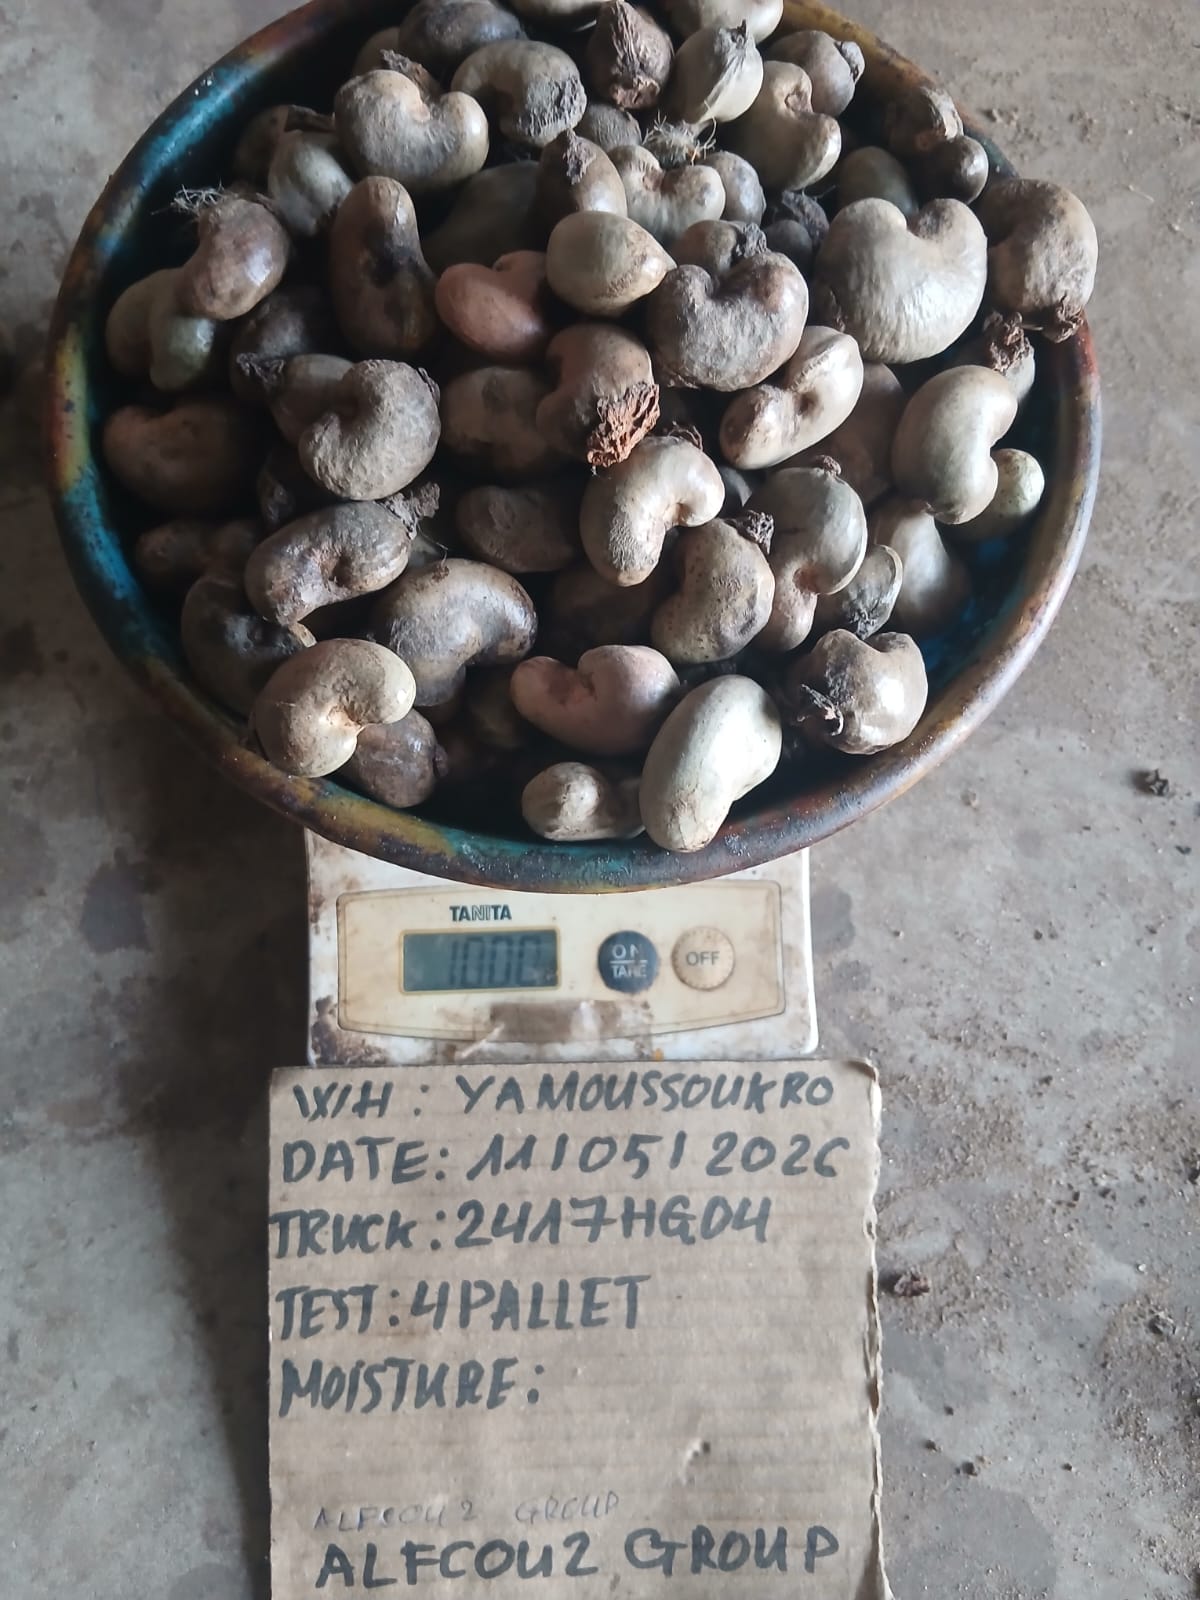 TANITA
1000
ON
TARE
OFF
W/H : YAMOUSSOUKRO
DATE: 11/05/2026
TRUCK: 2417HG04
TEST: 4PALLET
MOISTURE:
ALFCOU2 GROUP
ALFCOU2 GROUP